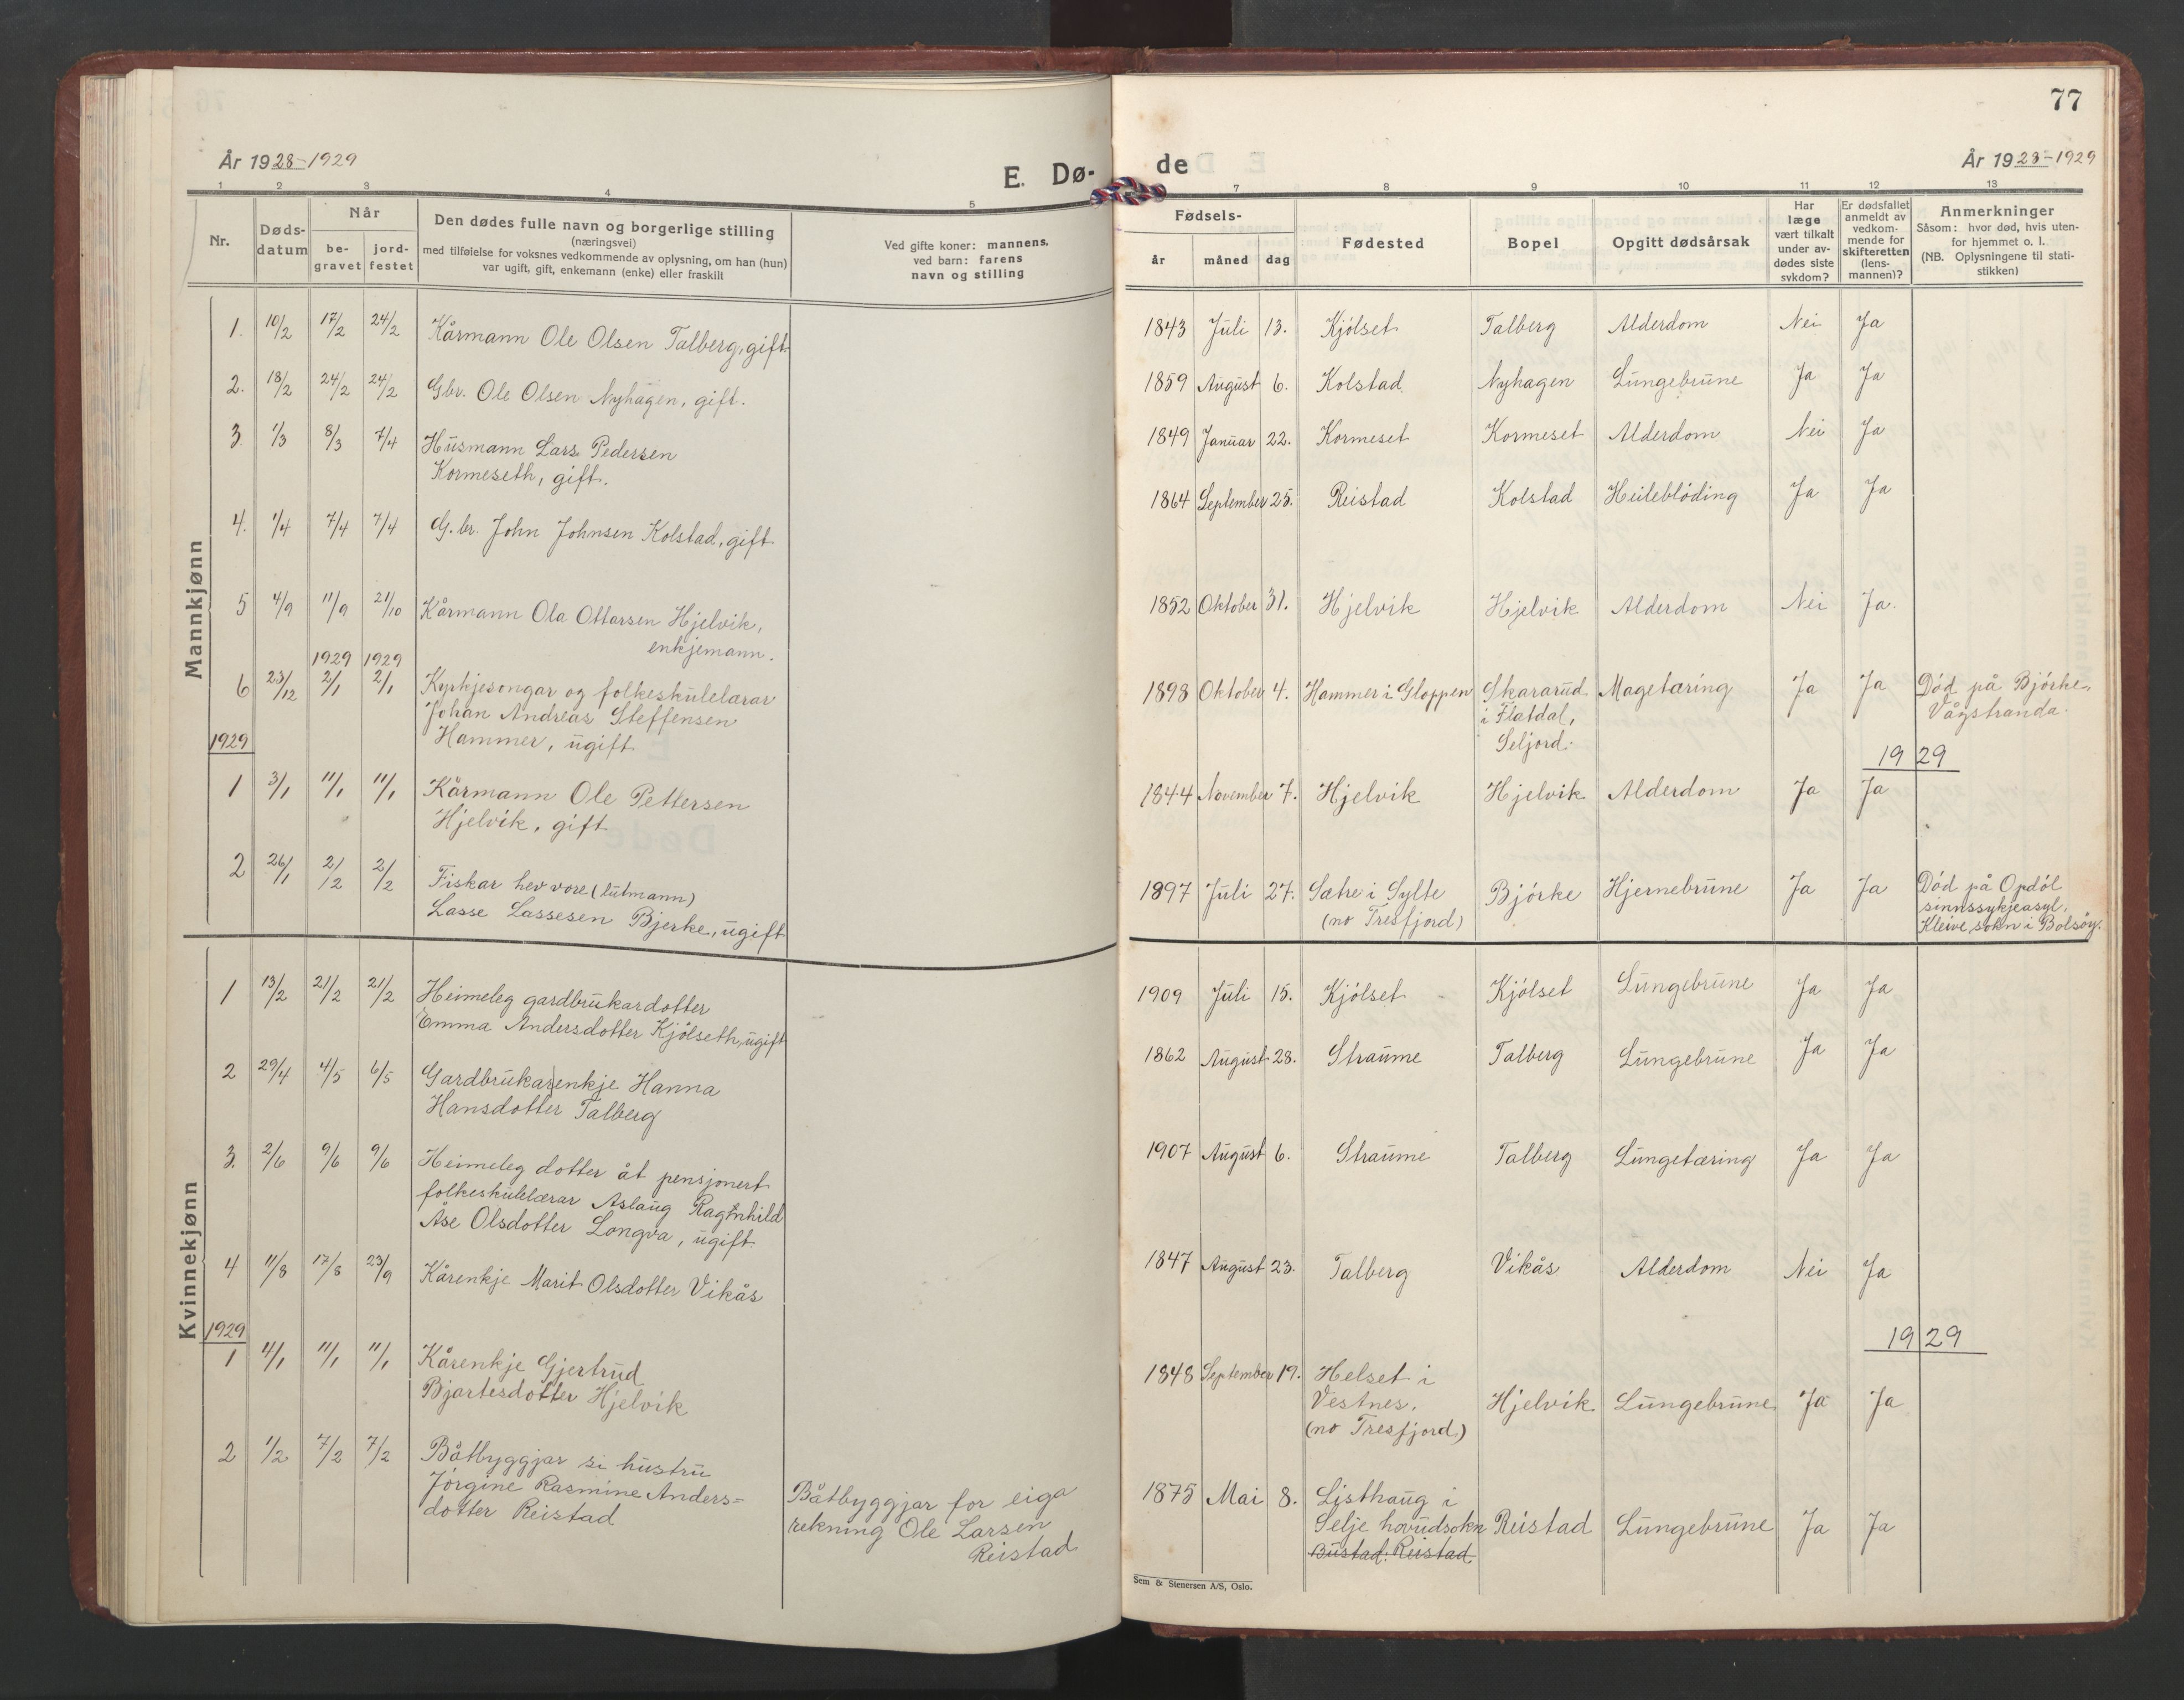 77
År 1928-1929
E. Dø-
de
År 1928-1929
1 2 3 4 5 7 8 9 10 11 12 13
Nr.
Døds-
datum
Når
be-
gravet
jord-
festet
Den dødes fulle navn og borgerlige stilling
(næringsvei)
med tilføielse for voksnes vedkommende av oplysning, om han (hun)
var ugift, gift, enkemann (enke) eller fraskilt
Ved gifte koner: mannens,
ved barn: farens
navn og stilling
Fødsels-
år måned dag
Fødested
Bopel
Opgitt dødsårsak
Har
læge
vært tilkalt
under av-
dødes siste
sykdom?
Er dødsfallet
anmeldt av
vedkom-
mende for
skifteretten
(lens-
mannen)?
Anmerkninger
Såsom: hvor død, hvis uten-
for hjemmet o. l.
(NB. Oplysningene til stati-
stikken)
Mannkjønn
1. 10/2 17/2 24/2 Kårmann Ole Olsen Talberg, gift 1843 Juli 13. Kjölset Talberg Alderdom Nei Ja
2. 18/2 24/2 24/2 Gbr. Ole Olsen Nyhagen, gift. 1859 August 6. Kolstad Nyhagen Lungebrune Ja Ja
3. 1/3 8/3 7/4 Husmann Lars Pedersen 1849 Januar 22. Kormeset Kormeset Alderdom Nei Ja
Kormeseth, gift.
4. 1/4 7/4 7/4 G.br. John Johnsen Kolstad, gift 1864 September 25. Reistad Kolstad Heileblöding Ja Ja
5 4/9 11/9 21/10 Kårmann Ola Ottarsen Hjelvik, 1852 Oktober 31. Hjelvik Hjelvik Alderdom Nei Ja.
enkjemann.
1929 1929
6 23/12 2/1 2/1 Kyrkjesongar og folkeskulelærar 1898 Oktober 4. Hammer i Gloppen Skararud Magetæring Ja Ja Död på Björke,
Johan Andreas Steffensen i Flatdal, Vågstranda.
Hammer, ugift Seljord.
1929 1929
1 3/1 11/1 11/1 Kårmann Ole Pettersen 1844 November 7. Hjelvik Hjelvik Alderdom Ja Ja
Hjelvik, gift
2 26/1 2/2 2/2 Fiskar hev vore (lutmann) 1897 Juli 27. Sætre i Sylte Björke Hjernebrune Ja Ja Död på Opdöl
Lasse Lassesen Bjerke, ugift (no Tresfjord) sinnssykjeasyl,
Kleive sokn i Bolsöy.
Kvinnekjønn
1 13/2 21/2 21/2 Heimeleg gardbrukardotter 1909 Juli 15. Kjölset Kjölset Lungebrune Ja Ja
Emma Andersdotter Kjölseth, ugift
2 29/4 4/5 6/5 Gardbrukarenkje Hanna 1862 August 28. Straume Talberg Lungebrune Ja Ja
Hansdotter Talberg
3. 2/6 9/6 9/6 Heimeleg dotter åt pensjonert 1907 August 6. Straume Talberg Lungetæring Ja Ja
folkeskulelærar Aslaug Ragnhild
Åse Olsdotter Longva, ugift.
4 11/8 17/8 23/9 Kårenkje Marit Olsdotter Vikås 1847 August 23. Talberg Vikås Alderdom Nei Ja
1929 1929
1 4/1 11/1 11/1 Kårenkje Gjertrud 1848 September 19. Helset i Hjelvik Lungebrune Ja Ja
Bjartesdotter Hjelvik Vestnes.
(no Tresfjord)
2 1/2 7/2 7/2 Båtbyggjar si hustru Båtbyggjar for eiga 1875 Mai 8. Listhaug i Reistad Lungebrune Ja Ja
Jörgine Rasmine Anders= rekning Ole Larsen Selje hovudsokn
dotter Reistad Reistad Bustad: Reistad
Sem & Stenersen A/S, Oslo.